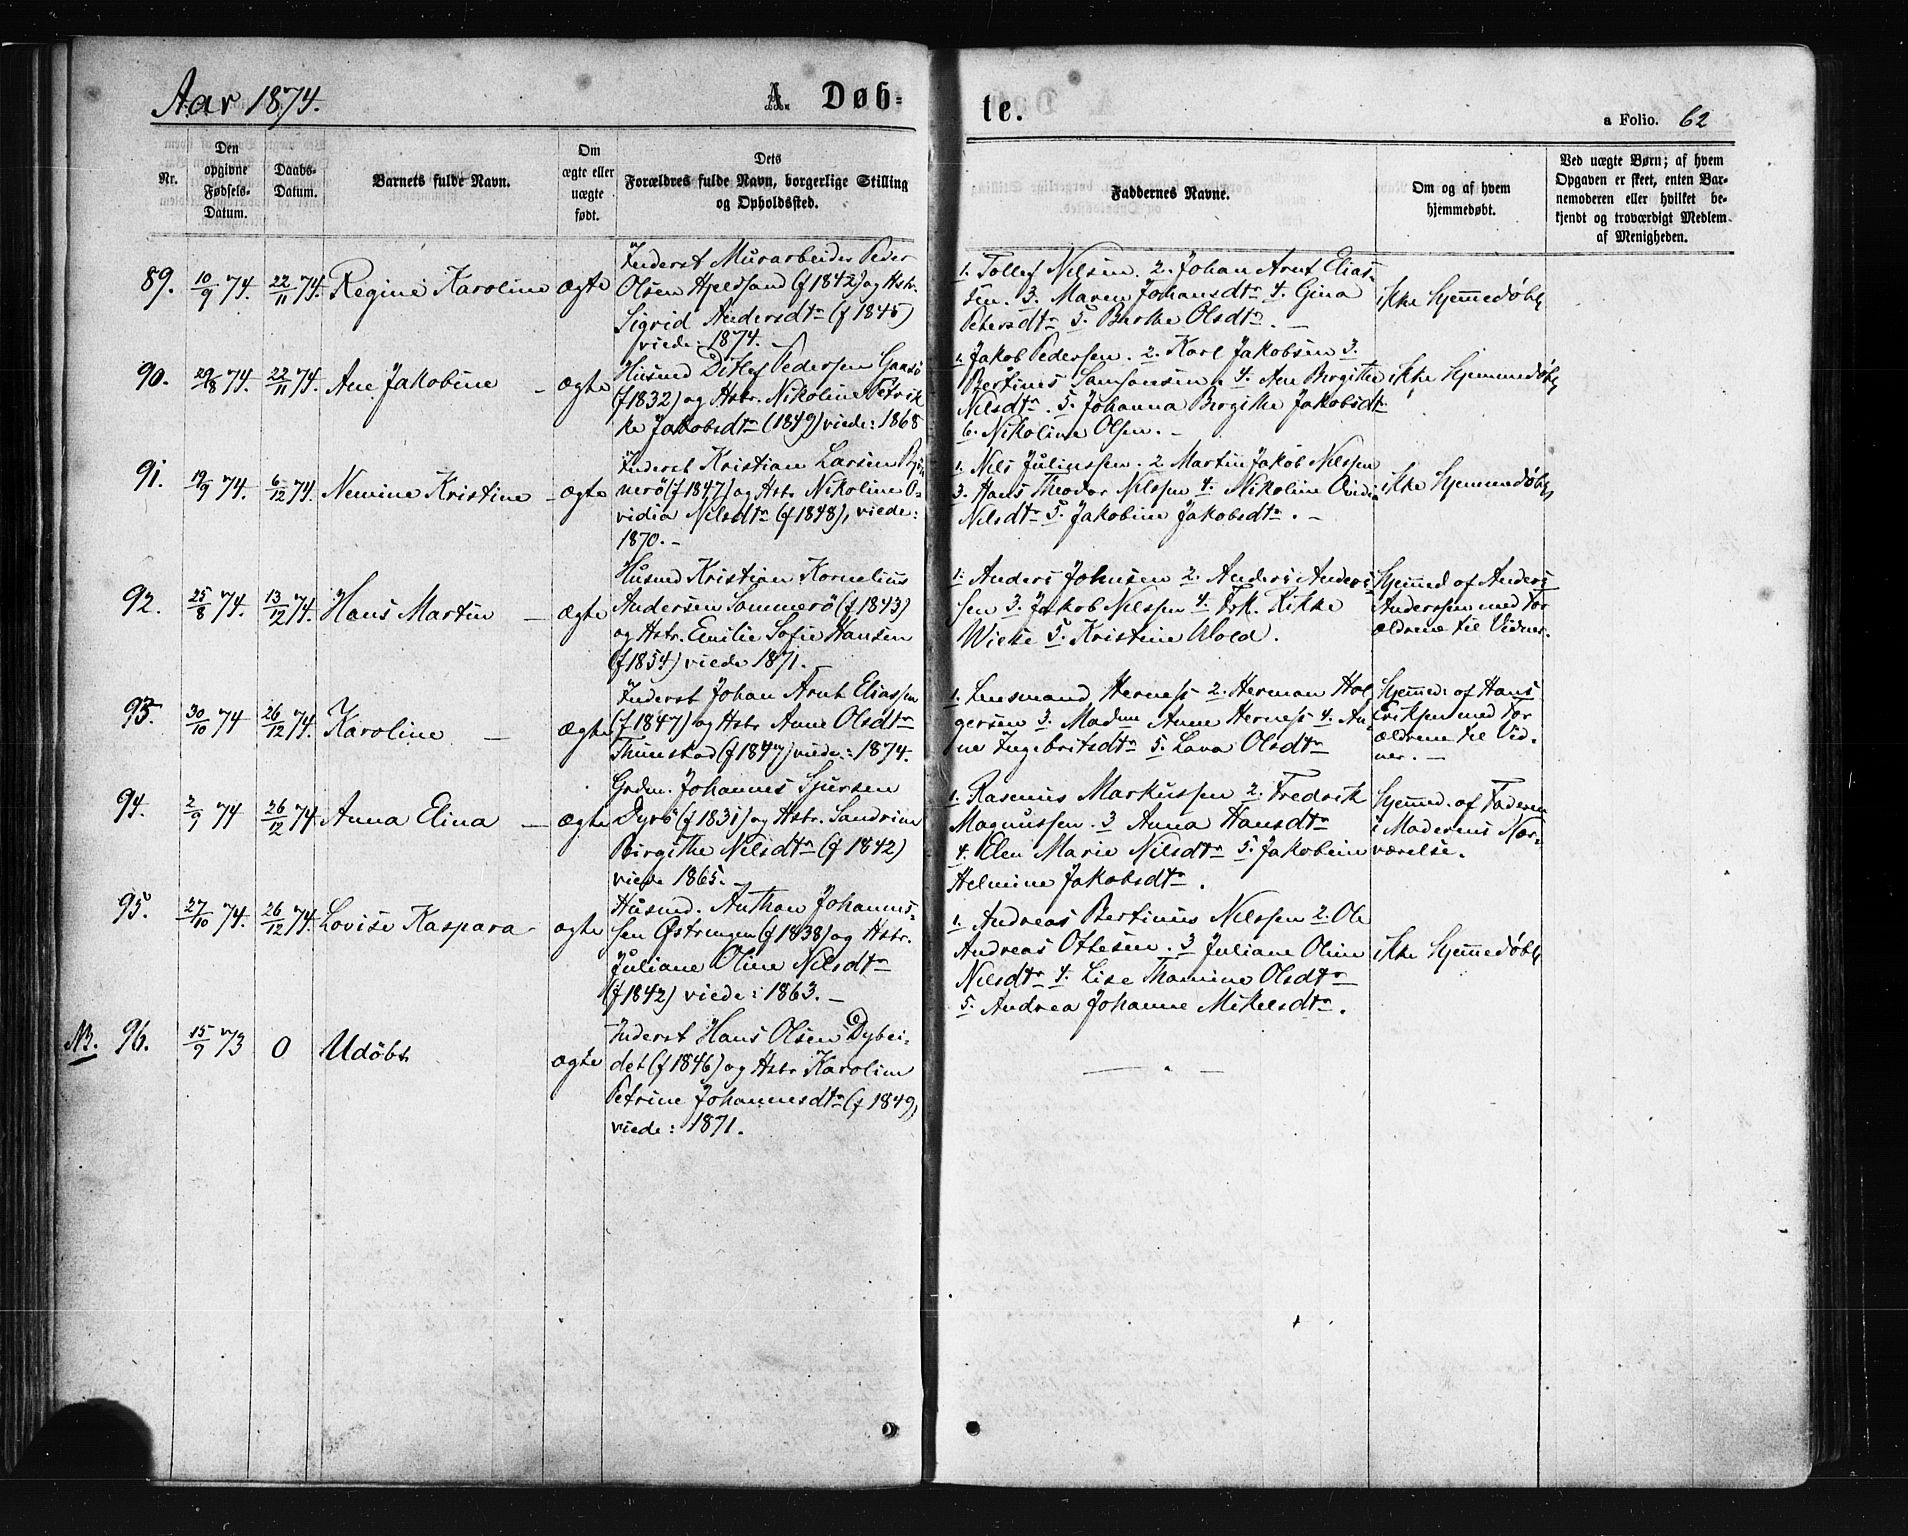 Aar 1874.
A. Døb-
te.
a Folio. 62
Nr.
Den
opgivne
Fødsels-
Datum.
Daabs-
Datum.
Barnets fulde Navn.
Om
ægte eller
uægte
født.
Dets
Forældres fulde Navn, borgerlige Stilling
og Opholdssted.
Faddernes Navne.
Om og af hvem
hjemmedøbt.
Ved uægte Børn; af hvem
Opgaven er skeet, enten Bar-
nemoderen eller hvilket be-
kjendt og troværdigt Medlem
af Menigheden.
89. 10/9 74. 22/11 74. Regine Karoline ægte
Inderst Murarbeider Peder
Olsen Hjeldsand (f 1842) og Hstr.
Sigrid Andersdtr (f 1845)
viede: 1874. -
1. Tollef Nilsen. 2. Johan Arnt Elias-
sen. 3. Maren Johansdtr 4. Gina
Petersdtr 5. Berthe Olsdtr. -
ikke hjemmedøbt
90. 29/8 74. 22/11 74. Ane Jakobine - ægte
Husmd Ditlef Pedersen Gaasø
(f 1832) og Hstr. Nikoline Petrik
ke Jakobsdtr (1849) viede: 1868
1. Jakob Pedersen. 2. Karl Jakobsen 3.
Bertines Samsonsen. 4. Ane Birgithe
Nilsdtr. 5. Johanna Birgithe Jakobsdtr
6. Nikoline Olsen. -
ikke hjemmedøbt
91. 19/9 74. 6/12 74. Nemine Kristine - ægte
Inderst Kristian Larsen
nerö (f 1847) og Hstr Nikoline O-
vidia Nilsdtr (f 1848), viede:
1870. -
1. Nils Juliussen. 2 Martin Jakob Nilssen
3. Hans Theodor Nilssen 4. Nikoline Ovidia
Nilsdtr 5. Jakobine Jakobsdtr. -
ikke hjemmedøbt
92. 25/8 74. 13/12 74. Hans Martin - ægte
Husmd Kristian Kornelius
Andersen Sommerö (f 1843)
og Hstr. Emilie Sofie Hansen
(f 1854) viede 1871.
1. Anders Johnsen 2. Anders Anders-
sen 3. Jakob Nilssen 4. Frk. Rikke
Wiese 5. Kristine Wold.
Hjemmed. af Anders
Anderssen med For
ældrene til Vidner.
93. 30/10 74 26/12 74. Karoline - ægte
Inderst Johan Arnt Eliassen
(f 1847) og Hstr Anne Olsdtr
Thunstad (f 1847) viede: 1874.
1. Lensmand Herness 2. Herman Hol
gersen 3. Madme Anne Herness 4. An-
ne Ingebritsdtr 5. Lava Olsdtr
Hjemmed: af Hans
Eriksen med For
ældrene til Vid-
ner. -
94. 2/9 74 26/12 74 Anna Elina - ægte
Grdm. Johannes Sjursen
Dyrö (f 1831) og Hstr. Sandrine
Birgithe Nilsdtr (f 1842)
viede 1865. -
1. Rasmus Markussen 2. Fredrik
Magnussen. 3 Anna Hansdtr
4. Elen Marie Nilsdtr 5. Jakobine
Helmine Jakobsdtr.
Hjemmed. af Faderen
i Moderens Nær-
værelse.
95. 27/10 74. 26/12 74. Lovise Kaspara - ægte
Husmd. Anthon Johannes-
sen Østringen (f 1838) og Hstr.
Juliane Oline Nilsdtr
(f 1842) viede: 1863. -
1. Andreas Bertinus Nilssen 2. Ole
Andreas Ottesen. 3 Juliane Oline
Nilsdtr 4. Lise Thamine Olsdtr
5. Andrea Johanne Mikelsdtr.
ikke hjemmedøbt
NB. 96. 15/9 73 0 Udöbt ægte
Inderst Hans Olsen Dybei-
det (f 1846) og Hstr Karoline
Petrine Johannesdtr (f 1849),
viede: 1871.